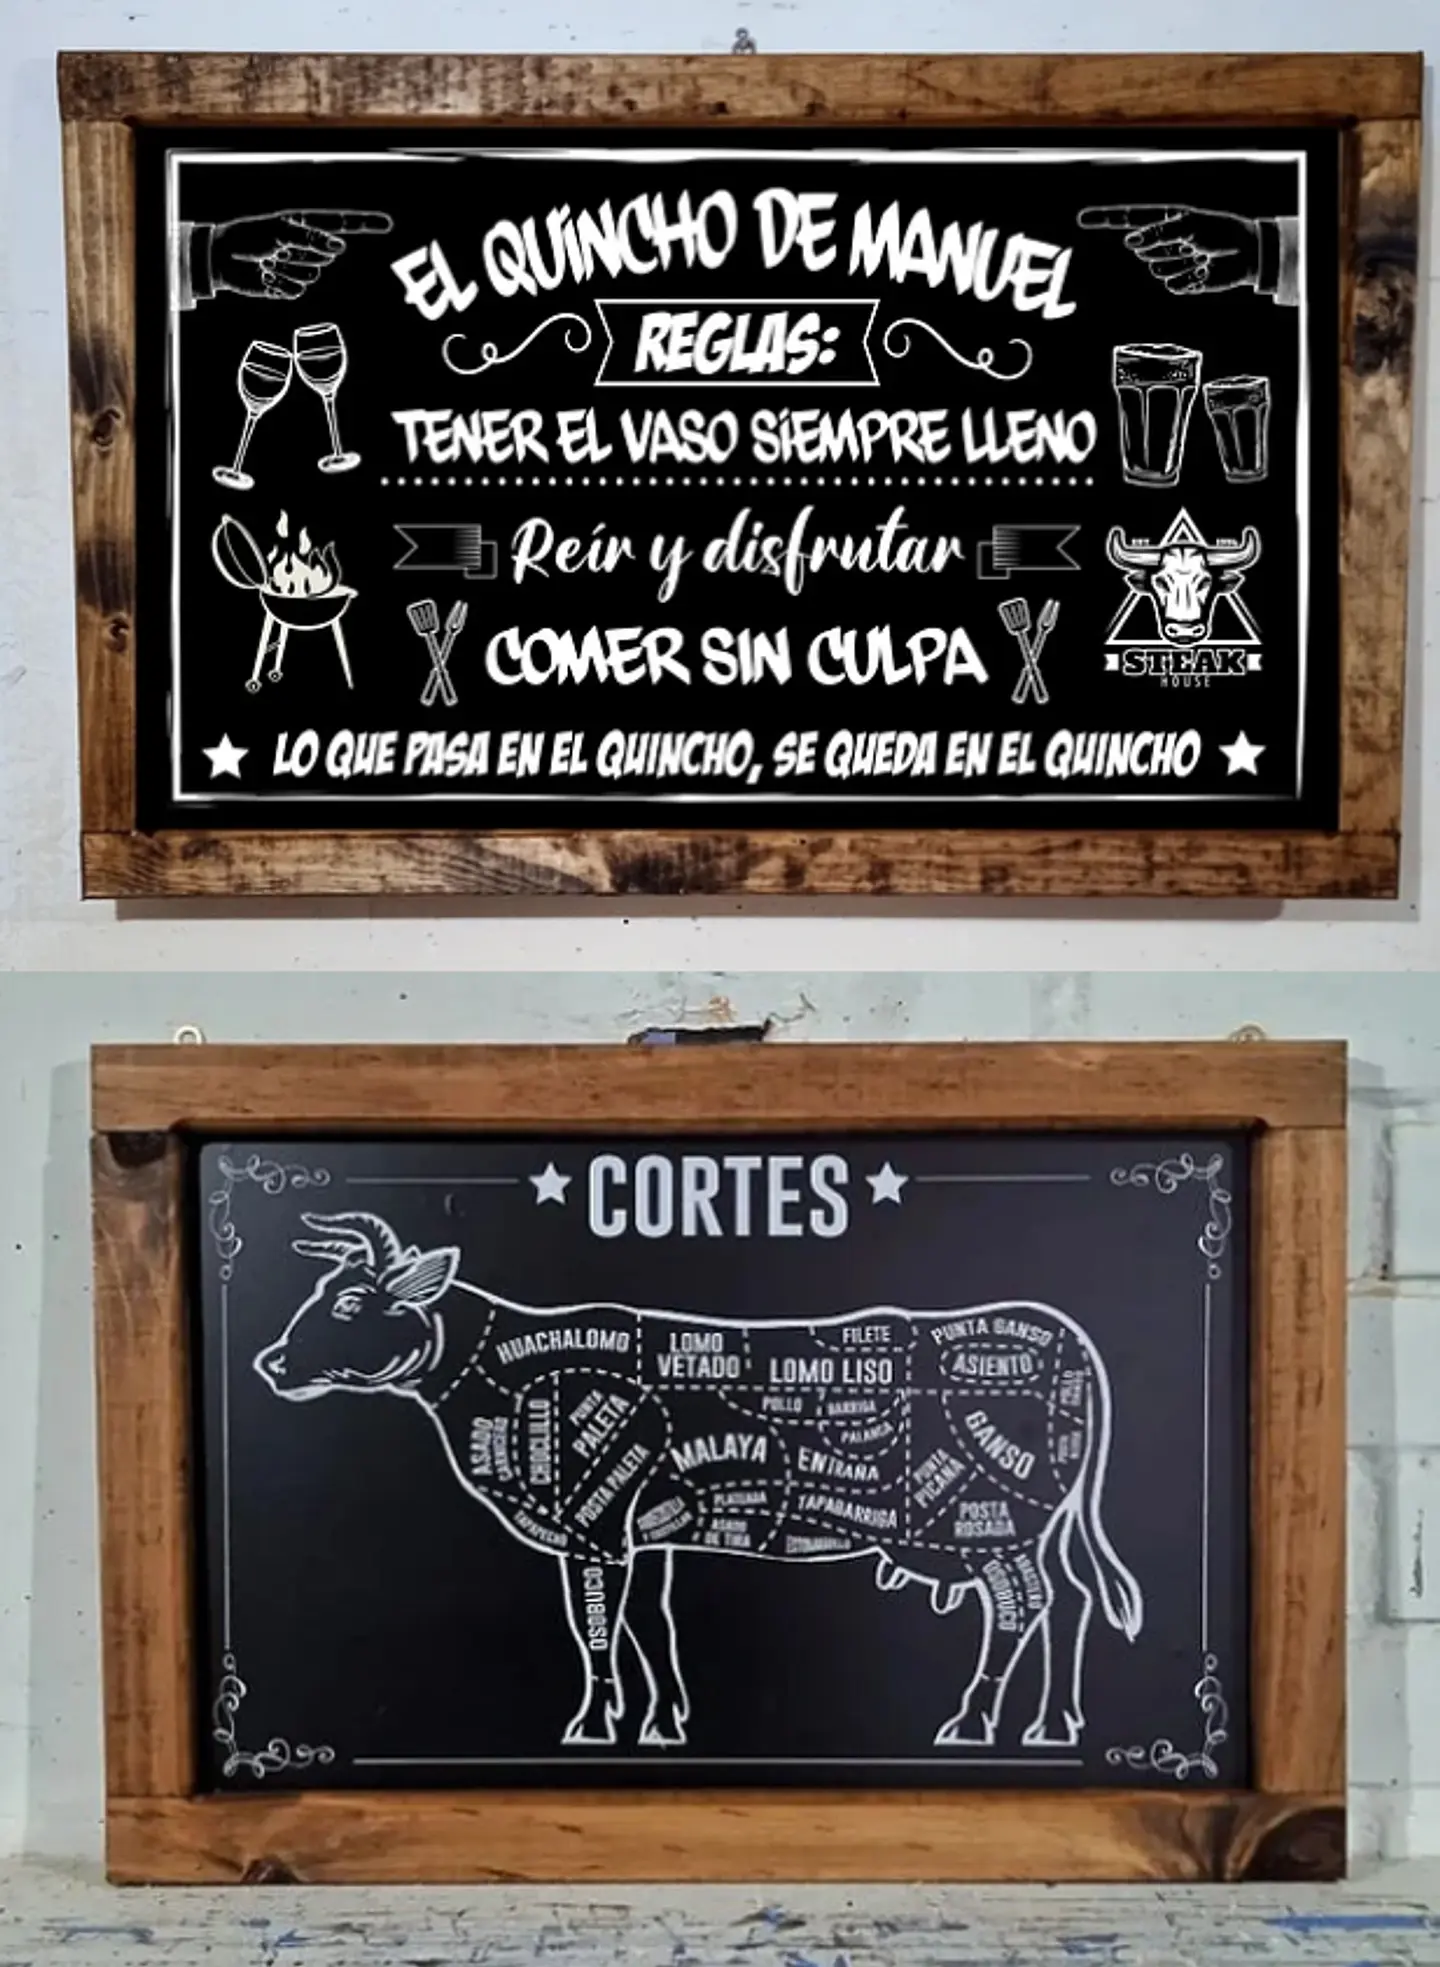 EL QUINCHO DE MANUEL
REGLAS:
TENER EL VASO SIEMPRE LLENO
Reír y disfrutar
COMER SIN CULPA
STEAK
HOUSE
LO QUE PASA EN EL QUINCHO, SE QUEDA EN EL QUINCHO
CORTES
HUACHALOMO
LOMO
VETADO
FILETE
LOMO LISO
PUNTA GANSO
ASIENTO
POLLO
GANSO
POLLO
BARRIGA
PALANCA
ASADO
CARNICERO
CHOCLILLO
PUNTA
PALETA
POSTA PALETA
MALAYA
ENTRAÑA
PUNTA
PICANA
GANSO
POSTA
NEGRA
PLATEADA
TAPABARRIGA
POSTA
ROSADA
TAPAPECHO
ASADO
DE TIRA
ESTOMAGUILLO
OSOBUCO
OSOBUCO